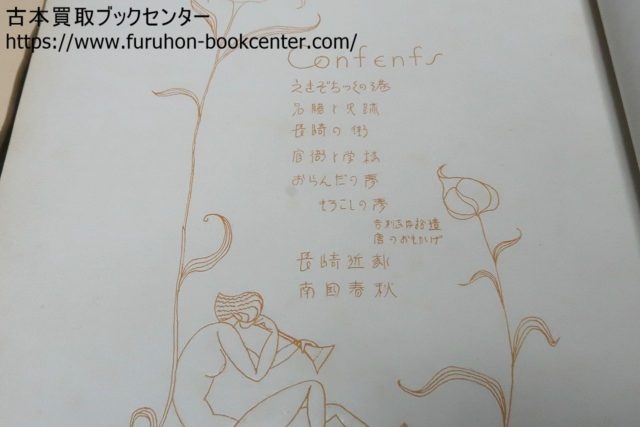 古本買取ブックセンター
https://www.furuhon-bookcenter.com/
Contents
えきぞちつくの港
名勝と史跡
長崎の街
官衙と学校
おらんだの夢
もろこしの夢
唐のおもかげ
長崎近郊
南国春秋